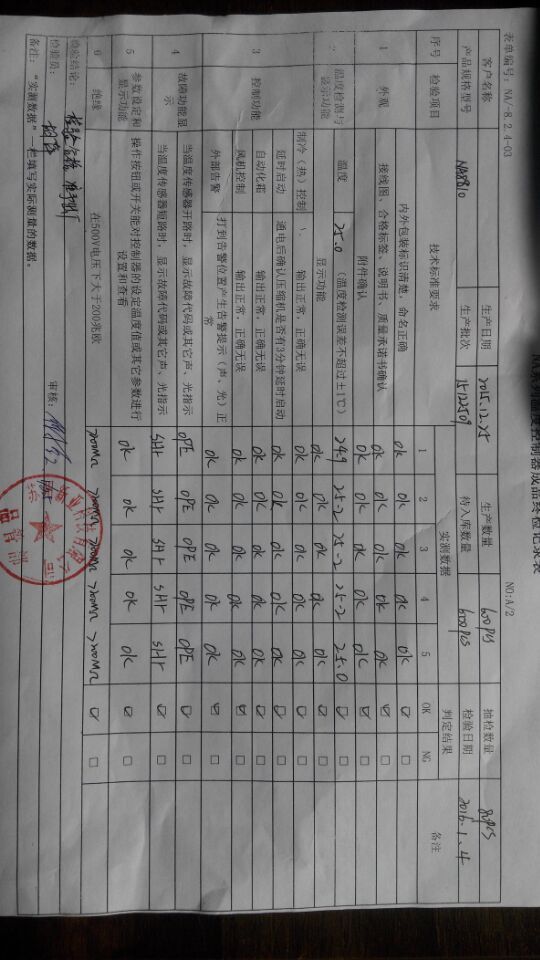 温度控制器成品终检记录表
表单编号：NA/-8.2.4-03 NO:A/2
客户名称 生产日期 2015.12.25 生产数量 600PCS 抽检数量 80PCS
产品规格型号 NA8810 生产批次 15122509 待入库数量 600PCS 检验日期 2016.1.4
序号 检验项目 技术标准要求 实测数据 判定结果 备注
1 2 3 4 5 OK NG
1 外观 内外包装标识清楚，命名正确 ok ok ok ok ok ☑ □
接线图、合格标签、说明书、质量承诺书确认 ok ok ok ok ok ☑ □
附件确认 ok ok ok ok ok ☑ □
2 温度检测与显示功能 温度 25.0 （温度检测误差不超过±1℃） 24.9 25.2 25.2 25.2 25.0 ☑ □
显示功能 ok ok ok ok ok ☑ □
3 控制功能 制冷（热）控制 输出正常，正确无误 ok ok ok ok ok ☑ □
延时启动 通电后确认压缩机是否有3分钟延时启动 ok ok ok ok ok ☑ □
自动化霜 输出正常，正确无误 ok ok ok ok ok ☑ □
风机控制 输出正常，正确无误 ok ok ok ok ok ☑ □
外部告警 打到告警位置产生告警提示（声、光）正常 ok ok ok ok ok ☑ □
4 故障功能显示 当温度传感器开路时，显示故障代码或其它声、光指示 OPE OPE OPE OPE OPE ☑ □
当温度传感器短路时，显示故障代码或其它声、光指示 SHr SHr SHr SHr SHr ☑ □
5 参数设定和显示功能 操作按钮或开关能对控制器的设定温度值或其它参数进行设置和查看 ok ok ok ok ok ☑ □
6 绝缘 在500V电压下大于200兆欧 >200MΩ >200MΩ >200MΩ >200MΩ >200MΩ ☑ □
检验结论： 检验合格
检验员： 审核：
备注："实测数据"一栏填写实际测量的数据。